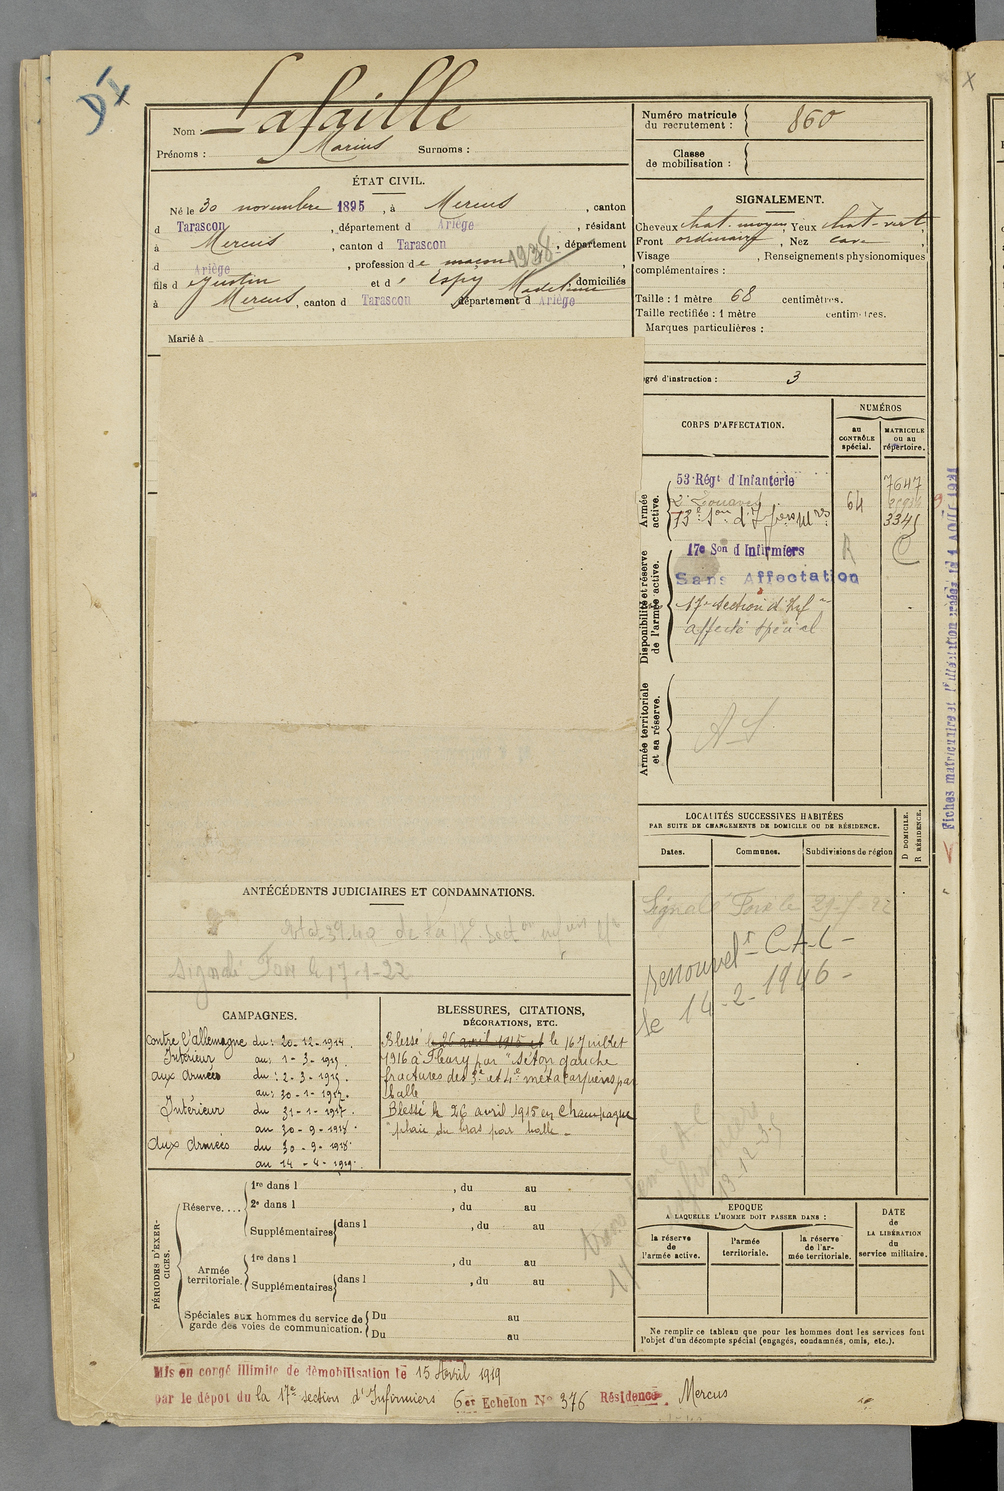 DI
X
Nom : Lafaille
Prénoms : Marius Surnoms :
Numéro matricule du recrutement : 860
Classe de mobilisation :
ÉTAT CIVIL.
Né le 30 novembre 1895, à Mercus, canton
d Tarascon, département d Ariège, résidant
à Mercus, canton d Tarascon, département
d Ariège, profession de maçon 1938,
fils d Justin et d' Espy Madeleine domiciliés
à Mercus, canton d Tarascon département d Ariège
Marié à
SIGNALEMENT.
Cheveux chat. moyen, Yeux chat-vert,
Front ordinaire, Nez cave,
Visage , Renseignements physionomiques
complémentaires :
Taille : 1 mètre 68 centimètres.
Taille rectifiée : 1 mètre centimètres.
Marques particulières :
egré d'instruction : 3
CORPS D'AFFECTATION.
NUMÉROS
au CONTRÔLE spécial.
MATRICULE ou au répertoire.
Armée active.
53e Régt d'Infanterie 7647
2e Zouaves 64
13e Son d'Infiers Mres 3345
Disponibilité et réserve de l'armée active.
17e Son d Infirmiers R C
Sans Affectation
17e section d'Inf
affecté spécial
Armée territoriale et sa réserve.
A S
LOCALITÉS SUCCESSIVES HABITÉES
PAR SUITE DE CHANGEMENTS DE DOMICILE OU DE RÉSIDENCE.
Dates. Communes. Subdivisions de région
D DOMICILE. R RÉSIDENCE.
Signalé Foix le 29-7-22
renouvelt C.A.C-
le 14-2-1946-
ANTÉCÉDENTS JUDICIAIRES ET CONDAMNATIONS.
de la 17e Secton
Signalé Foix le 17-1-22
CAMPAGNES.
contre l'allemagne du : 20-12-1914.
Intérieur au : 1-3-1915.
aux Armées du : 2-3-1915.
au : 30-1-1917.
Intérieur du 31-1-1917.
au 30-9-1918.
Aux Armées du 30-9-1918.
au 14-4-1919.
BLESSURES, CITATIONS,
DÉCORATIONS, ETC.
Blessé le 26 avril 1915 et le 16 Juillet
1916 à Fleury par "séton gauche
fractures des 3e et 4e métacarpiens par
balle
Blessé le 26 avril 1915 en Champagne
"plaie du bras par balle_
A C
13-12-35
PÉRIODES D'EXERCICES.
Réserve....
1re dans l , du au
2e dans l , du au
Supplémentaires dans l , du au
Armée territoriale.
1re dans l , du au
Supplémentaires dans l , du au
Spéciales aux hommes du service de garde des voies de communication.
Du au
Du au
EPOQUE
A LAQUELLE L'HOMME DOIT PASSER DANS :
la réserve de l'armée active.
l'armée territoriale.
la réserve de l'armée territoriale.
DATE de LA LIBÉRATION du service militaire.
Ne remplir ce tableau que pour les hommes dont les services font
l'objet d'un décompte spécial (engagés, condamnés, omis, etc.).
Mis en congé illimité de démobilisation le 15 Avril 1919
par le dépot du la 17e section d'Infirmiers 6er Echelon No 376 Résidence. Mercus